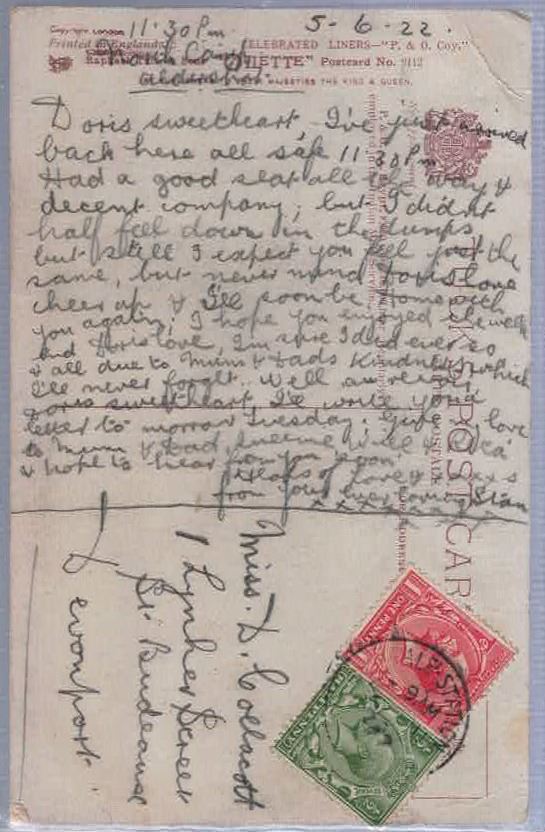 11:30 Pm 5-6-22.
Copyright London
Printed in England
CELEBRATED LINERS—"P. & O. Coy."
"OILETTE" Postcard No. 9112
MAJESTIES THE KING & QUEEN.
South Camp
Aldershot.
Doris sweetheart, I've just arrived
back here all safe 11:30 Pm
Had a good seat all the way &
decent company; but I didnt
half feel down in the dumps
but still I expect you feel just the
same, but never mind Doris love
cheer up & I'll soon be home with
you again; I hope you enjoyed the week
end Doris love, I'm sure I did ever so
& all due to Mum & Dads Kindness, which
I'll never forget. Well
Doris sweetheart, I'll write you a
letter to morrow Tuesday; Give love
to Mum & Dad,
& hope to hear from you soon
of love & xxs
from your ever loving Stan
x x x x x x x x
POST CARD
Miss. D. Collacott
1 Lynher Street
St. Budeaux
Devonport.
ONE PENNY